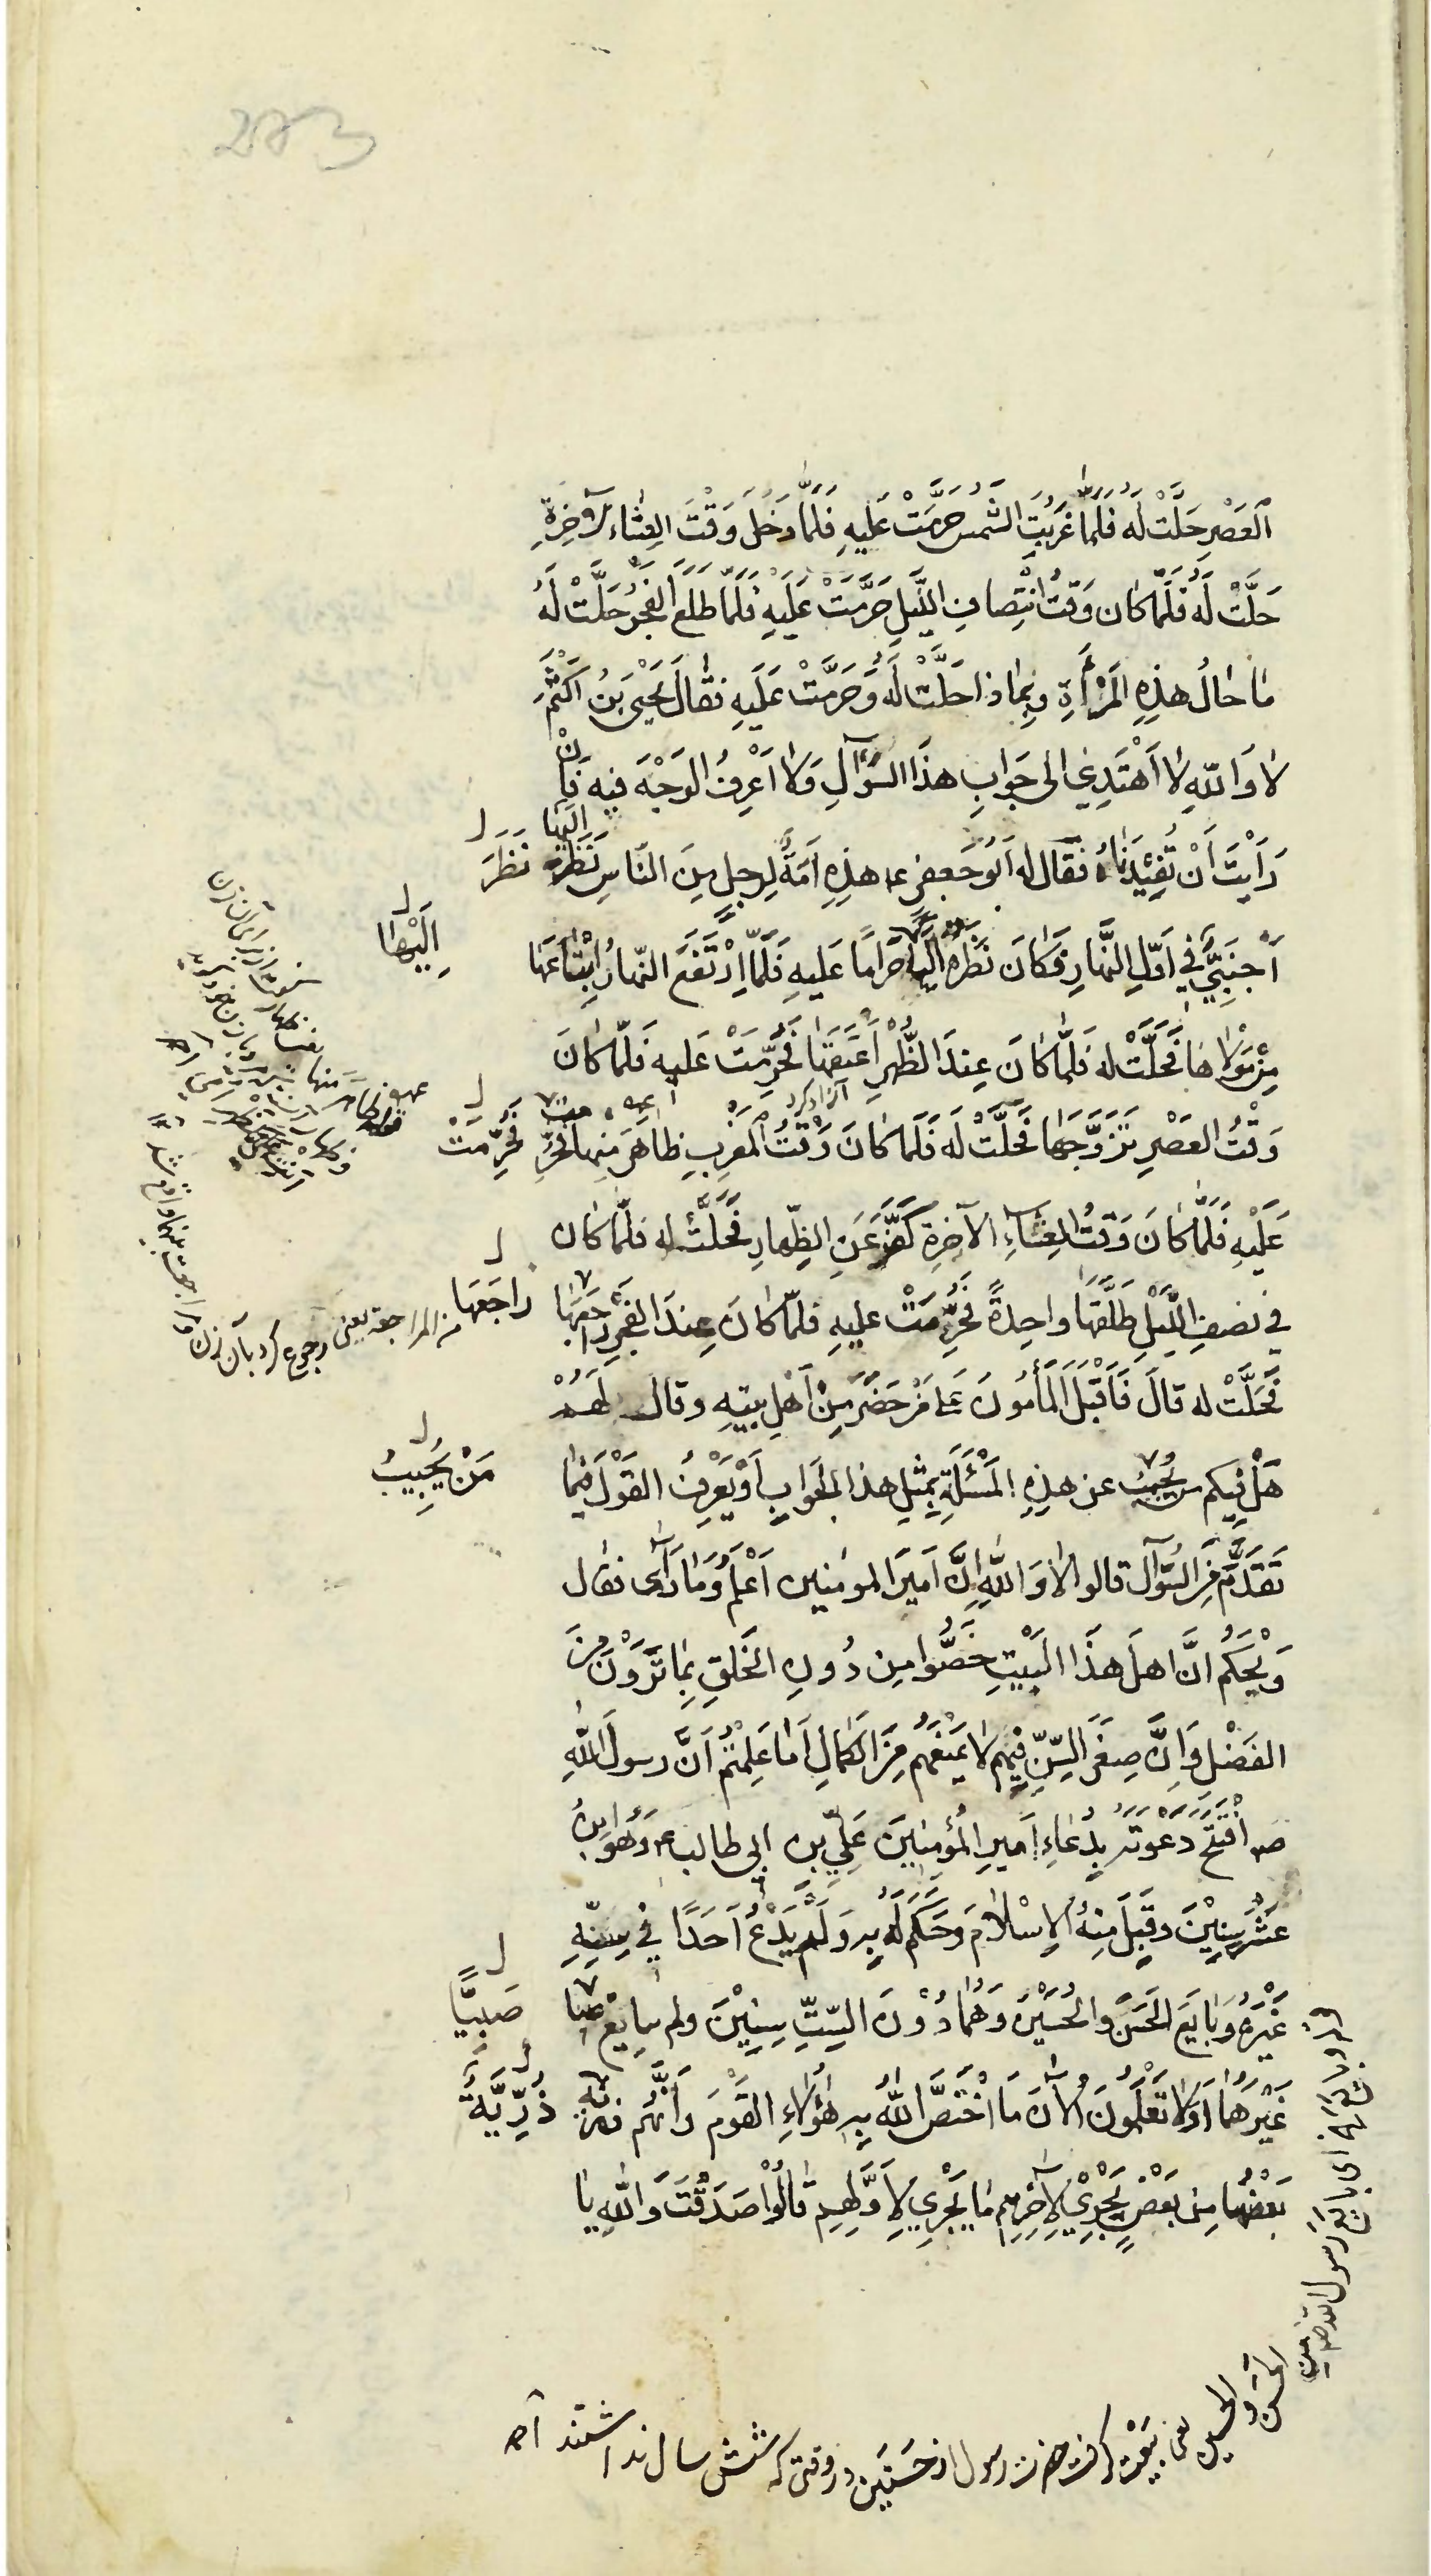 283
اَلعَصْرِ حَلَّتْ لَهُ فَلَمَّا غَرَبَتِ الشَّمْسُ حَرَّمَتْ عَلَيهِ فَلَمَّا دَخَلَ وَقْتَ العِشَاءِ الآخِرَةِ
حَلَّتْ لَهُ فَلَمَّا كَان وَقتُ انْتِصافِ اللَّيلِ حَرَّمَتْ عَلَيْهِ فَلَمَّا طَلَعَ الفَجْرُ حَلَّتْ لَهُ
مَا حَالُ هذِهِ المَرْأَةِ وَبِمَا ذا حَلَّتْ لَهُ وَحَرَّمَتْ عَلَيهِ فقَالَ يَحْيَى بنُ اَكْثَمَ
لا وَاللّهِ لا اَهْتَدِي الى جَوابِ هذَا السُّؤَالِ وَلا اَعْرِفُ الوَجْهَ فيهِ فَاِنْ
رَأَيتَ أَنْ تُفِيْدَنَاهُ فَقَالَ له اَبُو جَعفرٍ ع هذِهِ اَمَةٌ لِرجلٍ مِنَ النَّاسِ نَظَرَ اِلَيْهَا
نَظَرَ
اِلَيْهَا
اَجْنَبِيٌّ فِي اَوَّلِ النَّهارِ فَكَانَ نَظَرُه اِلَيها حَرَامًا عَلَيهِ فَلَمَّا اِرْتَفَعَ النّهارُ اِبْتَاعَهَا
مِنْ مَوْلاهَا فَحَلَّتْ له فَلَمَّا كَانَ عِندَ الظُّهْرِ اَعتَقَهَا فَحُرِّمَتْ عَليهِ فَلَمّا كَانَ
آزاد کرد
وَقْتُ العَصْرِ تَزَوَّجَهَا فَحَلَّتْ لَه فَلَمّا كانَ وَقْتُ المَغْرِبِ ظاهَرَ مِنها فَحُرِّمَتْ
فَحُرِّمَتْ
عَلَيْهِ فَلَمَّا كَانَ وَقتُ العِشَاءِ الآخِرَةِ كَفَّرَ عَنِ الظِّهارِ فَحَلَّتْ له فلَمّا كان
في نصفِ اللَّيْلِ طَلَّقَهَا واحِدةً فَحُرِّمَتْ عليهِ فلمّا كَانَ عِندَ الفَجْرِ راجَعَهَا
راجَعَهَا
من المراجعه يعنی رجوع کرد بآن زن
فَحَلَّتْ له قالَ فَاَقْبَلَ المَأمُونُ عَلى مَنْ حَضَرَ مِنْ اَهْلِ بيتِهِ وقال لَهُمْ
هَلْ فيكم من يُجيبُ عن هذِهِ المَسْئَلَةِ بِمِثْلِ هذا الجَوابِ اَوْ يَعْرِفُ القَوْلَ فِيمَا
مَنْ يُجِيبُ
تَقَدَّمَ مِنَ السُّؤَالِ قالوا لا وَاللّهِ اِنَّ اَميرَ المومنين اَعْلَمُ وَمَا رَأى فقال
وَيْحَكُم اِنَّ اهلَ هذَا البَيْتِ خُصُّوا مِن دُونِ الخَلقِ بِمَا تَرَوْنَ مِنَ
الفَضْلِ وَاِنَّ صِغَرَ السِّنِّ فِيهِم لا يَمْنَعُهُم مِنَ الكَمالِ اَمَا عَلِمْتُم اَنَّ رسولَ اللّهِ
ص افْتَتَحَ دَعْوَتَهُ بِدُعَاءِ اَميرِ المُؤمِنِينَ عَلِيِّ بن ابي طالب ع وَهُوَ ابنُ
عَشْرِ سِنِيْنَ وَقَبِلَ مِنهُ الاِسْلامَ وَحَكَمَ لَهُ بِهِ وَلَمْ يَدْعُ اَحَدًا في سِنِّهِ
غَيْرَهُ وَبَايَعَ الحَسَنَ وَالحُسَيْنَ وَهُمَا دُوْنَ السِّتِّ سِنِيْنَ ولم يبايِعْ صبيا
صَبِيًّا
غَيْرَهُمَا اَوَلا تَعْلَمُونَ الآنَ مَا اخْتَصَّ اللّهُ بِهِ هؤُلاءِ القَوْمَ وَاَنَّهُم ذرية
ذُرِّيَّةٌ
بَعْضُهَا مِن بَعْضٍ يَجْرِيْ لآخِرِهِمْ مَا يَجْرِي لاَوَّلِهِم قَالُوْا صَدَقْتَ وَاللّهِ يَا
رسول الله ص من
الحسن والحسين يعنی بَيْعَت گرفت حضرت رسول از حَسَنَين در وقتی که شش سال نداشتند